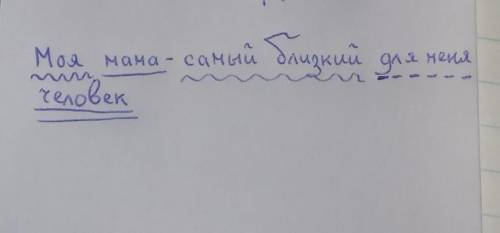 Моя мама - самый близкий для меня
человек